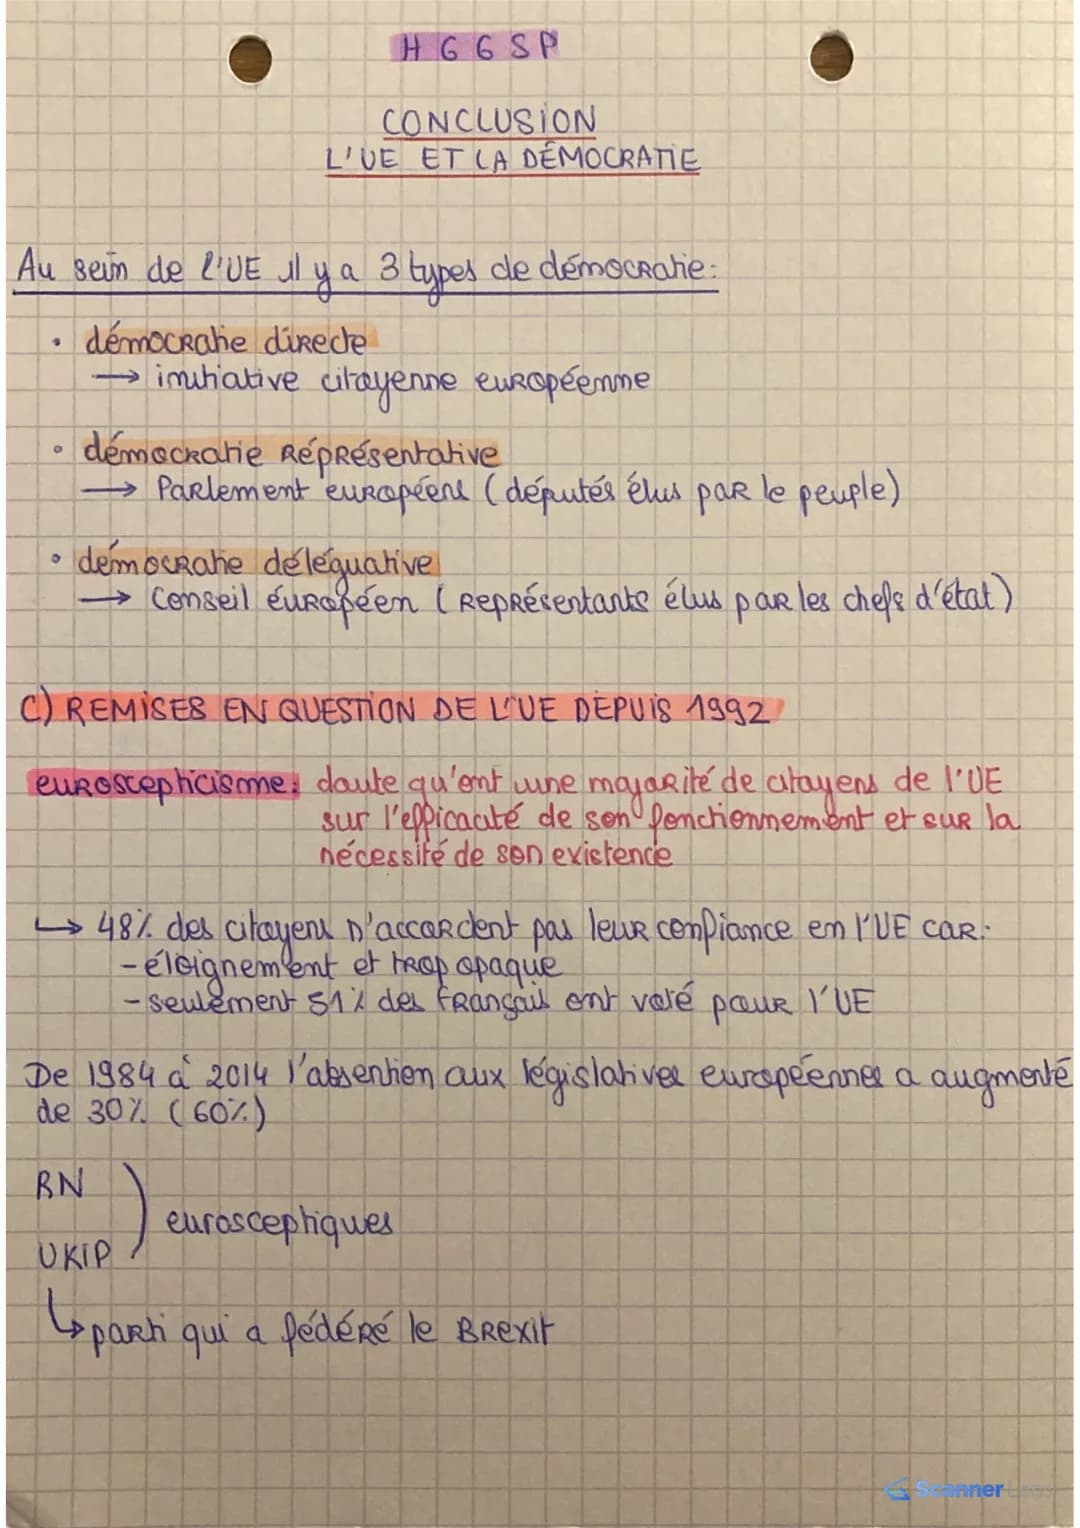 H G G S P
CONCLUSION
L'UE ET LA DÉMOCRATIE
Au sein de l'UE il y a 3 types de démocratie:
• démocratie directe
→ initiative citoyenne européenne
• démocratie Réprésentative
→ Parlement européens (députés élus par le peuple)
• démocratie déléguative
→ Conseil éuropéen (Représentants élus par les chefs d'état)
C) REMISES EN QUESTION DE L'UE DEPUIS 1992
euroscepticisme: doute qu'ont une majorité de citoyens de l'UE
sur l'efficacité de son fonctionnement et sur la
nécessité de son existence
↳ 48% des citoyens n'accordent pas leur confiance en l'UE car:
- éloignement et trop opaque
- seulement 51% des français ont voté pour l'UE
De 1984 à 2014 l'absention aux législatives européennes a augmenté
de 30% (60%)
RN
eurosceptiques
UKIP
↳ parti qui a fédéré le Brexit
Scanner